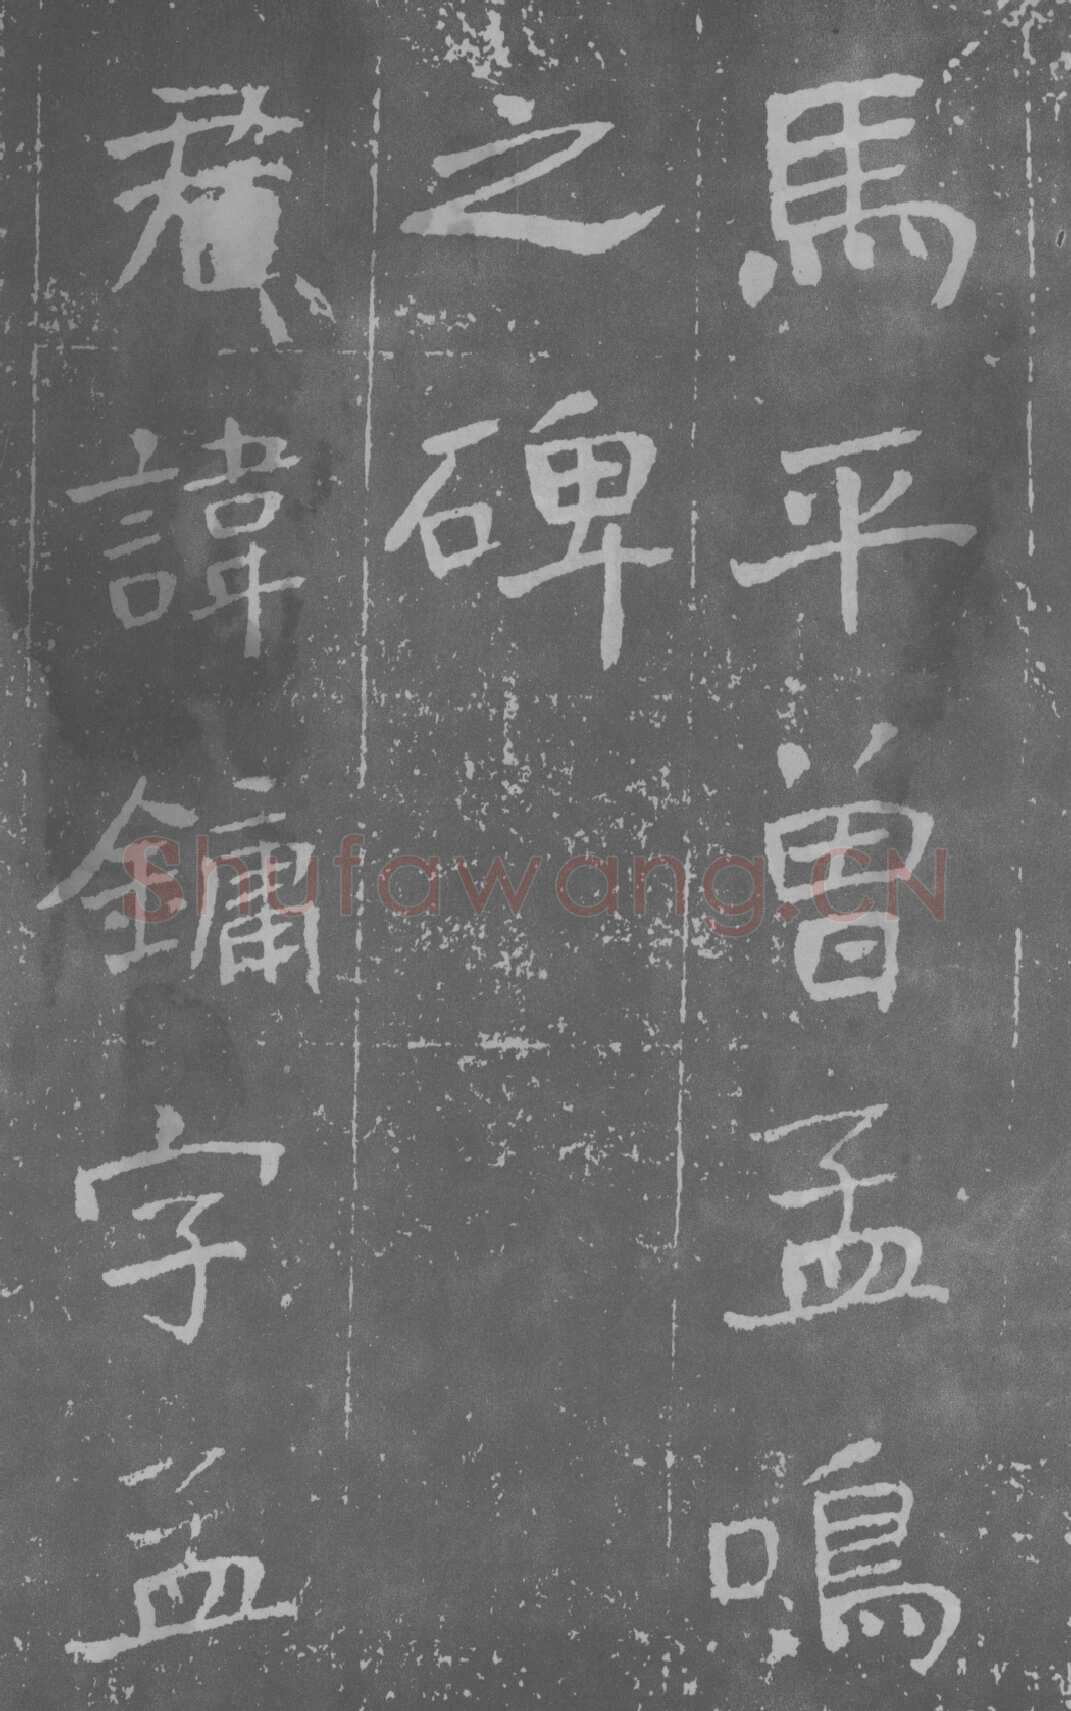 馬平曾孟鳴
之碑
君諱鏞字孟
Shufawang.CN